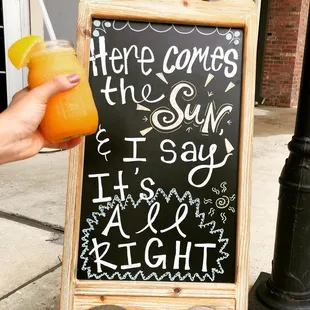 Here comes
the SUN,
& I say
It's
All
RIGHT